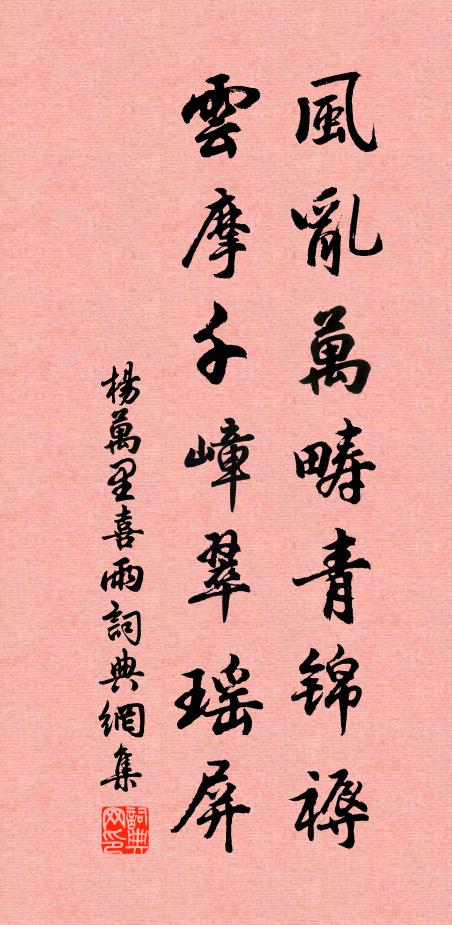 風亂萬疇青錦褥
雲摩千嶂翠瑤屏
楊萬里喜雨詞典網集
詞典網印